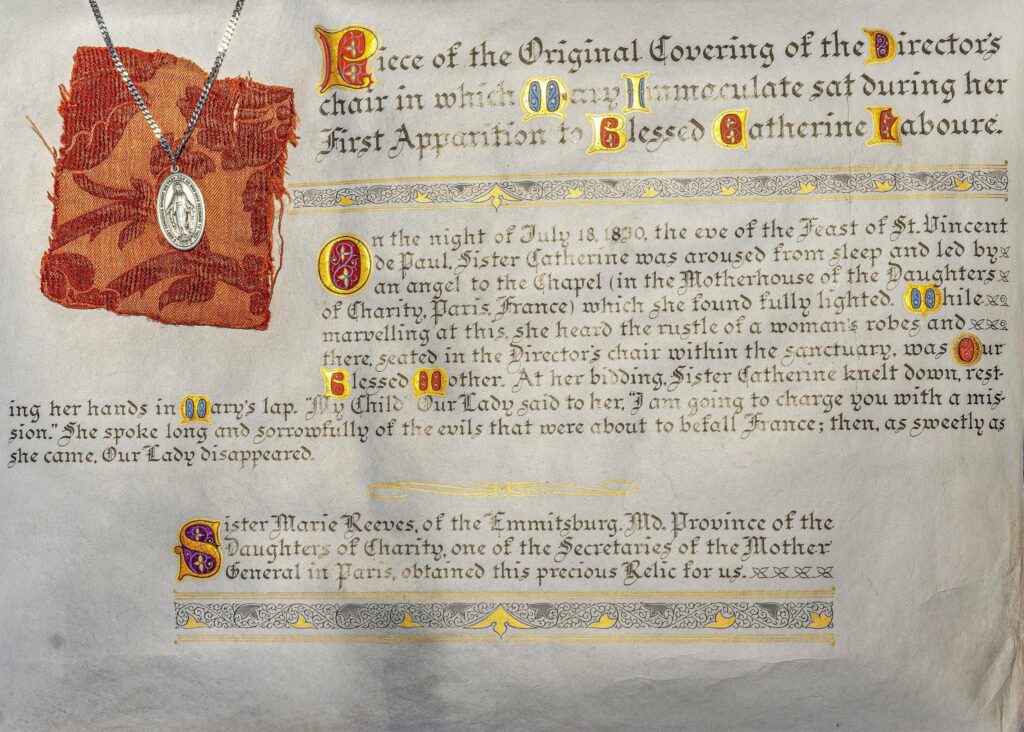 Piece of the Original Covering of the Director's
chair in which Mary Immaculate sat during her
First Apparition to Blessed Catherine Laboure.
On the night of July 18, 1830, the eve of the Feast of St. Vincent
de Paul, Sister Catherine was aroused from sleep and led by
an angel to the Chapel (in the Motherhouse of the Daughters
of Charity, Paris, France) which she found fully lighted. While
marvelling at this, she heard the rustle of a woman's robes and
there, seated in the Director's chair within the sanctuary, was Our
Blessed Mother. At her bidding, Sister Catherine knelt down, rest-
ing her hands in Mary's lap. "My Child" Our Lady said to her, "I am going to charge you with a mis-
sion." She spoke long and sorrowfully of the evils that were about to befall France; then, as sweetly as
she came, Our Lady disappeared.
Sister Marie Reeves, of the Emmitsburg, Md. Province of the
Daughters of Charity, one of the Secretaries of the Mother
General in Paris, obtained this precious Relic for us.